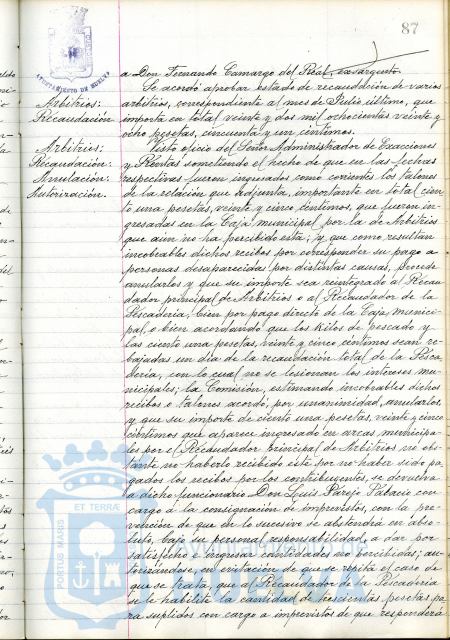 87
AYUNTAMIENTO DE HUELVA
a Don Fernando Camargo del Real, exsargento.
Se acordó aprobar estado de recaudación de varios
Arbitrios:
arbitrios, correspondiente al mes de Julio último, que
Recaudación
importa en total veinte y dos mil ochocientas veinte y
ocho pesetas, cincuenta y un céntimos.
Arbitrios:
Visto oficio del Señor Administrador de Exacciones
Recaudación:
y Rentas sometiendo el hecho de que en las fechas
Anulación:
respectivas fueron ingresados como corrientes los talones
Autorización.
de la relación que adjunta, importante en total cien
to una pesetas, veinte y cinco céntimos, que fueron in-
gresadas en la Caja municipal por la de Arbitrios
que aún no ha percibido esta; y que como resultan
incobrables dichos recibos por corresponder su pago a
personas desaparecidas por distintas causas, procede
anularlos y que su importe sea reintegrado al Recau
dador principal de Arbitrios o al Recaudador de la
Pescadería; bien por pago directo de la Caja munici-
pal, o bien acordando que los kilos de pescado y
las ciento una pesetas, veinte y cinco céntimos sean re-
bajadas un día de la recaudación total de la Pesca
dería, con lo cual no se lesionan los intereses mu-
nicipales; la Comisión, estimando incobrables dichos
recibos o talones acordó, por unanimidad, anularlos,
y que su importe de ciento una pesetas, veinte y cinco
céntimos que aparece ingresado en arcas municipa-
les por el Recaudador principal de Arbitrios no obs-
tante no haberlo recibido éste por no haber sido pa-
gados los recibos por los contribuyentes, se devuelva
a dicho funcionario Don Luis Parejo Palacio con
cargo a la consignación de imprevistos, con la pre-
vención de que en lo sucesivo se abstendrá en abso-
luto, bajo su personal responsabilidad, a dar por
satisfecho e ingresar cantidades no percibidas; au-
torizándose, en evitación de que se repita el caso de
que se trata, que al Recaudador de la Pescadería
se le habilite la cantidad de trescientas pesetas pa
ra suplidos con cargo a imprevistos de que responderá
PORTUS MARIS
ET TERRÆ